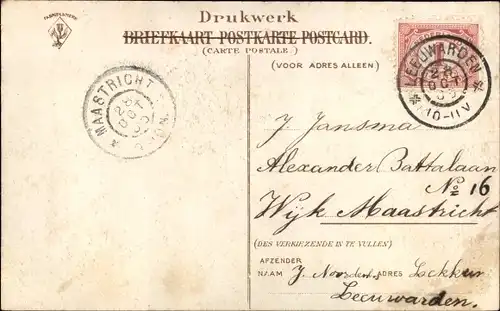 Drukwerk
BRIEFKAART POSTKARTE POSTCARD.
(CARTE POSTALE.)
(VOOR ADRES ALLEEN.)
LEEUWARDEN
28
OCT
10-11V
MAASTRICHT
28
OCT
J. Jansma
Alexander Battalaan
No 16
Wijk Maastricht
(DES VERKIEZENDE IN TE VULLEN)
AFZENDER
NAAM J. Noorden. ADRES
Leeuwarden.